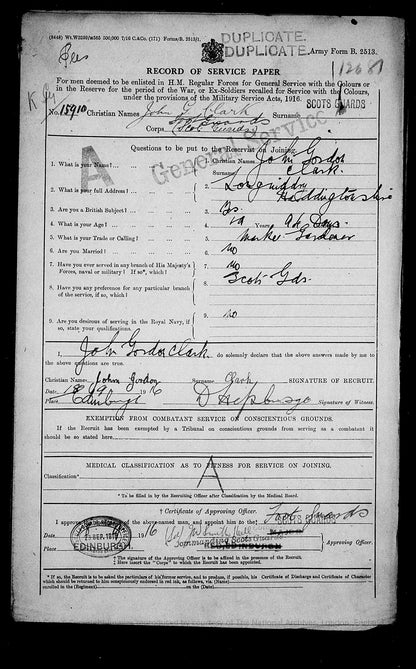 DUPLICATE.
DUPLICATE.
(8648) Wt.W3230/m585 500,000 7/16 C.&Co. (171) Forms/B. 2513/1.
Army Form B. 2513.
RECORD OF SERVICE PAPER
For men deemed to be enlisted in H.M. Regular Forces for General Service with the Colours or
in the Reserve for the period of the War, or Ex-Soldiers recalled for Service with the Colours,
under the provisions of the Military Service Acts, 1916.
SCOTS GUARDS
No. 15910 Christian Names John G. Clark Surname
Corps Foot Guards
(Scots Guards)
General Service
A
Questions to be put to the Recruit on Joining.
1. What is your Name? 1. Christian Names John Gordon
Surname Clark
2. What is your full Address? 2. Longniddry
Haddingtonshire
3. Are you a British Subject? 3. Yes
4. What is your Age? 4. Years Days
5. What is your Trade or Calling? 5. Market Gardener
6. Are you Married? 6. No
7. Have you ever served in any branch of His Majesty's 7. No
Forces, naval or military? If so, which?
8. Have you any preference for any particular branch 8. Scots Gds.
of the service, if so, which?
9. Are you desirous of serving in the Royal Navy, if 9. no
so, state your qualifications.
I, John Gordon Clark do solemnly declare that the above answers made by me to
the above questions are true.
Christian Names John Gordon Surname Clark SIGNATURE OF RECRUIT.
Date 16
Place Edinburgh D Hepburn Signature of Witness.
EXEMPTION FROM COMBATANT SERVICE ON CONSCIENTIOUS GROUNDS.
If the Recruit has been exempted by a Tribunal on conscientious grounds from serving as a combatant it
should be so stated here
MEDICAL CLASSIFICATION AS TO FITNESS FOR SERVICE ON JOINING.
Classification* A
* To be filled in by the Recruiting Officer after Classification by the Medical Board.
† Certificate of Approving Officer.
I approve the above-named man, and appoint him to the ‡ Foot Guards
SCOTS GUARDS
SEP. 1916
EDINBURGH
Date 1916
Commanding Scots Guards
Place EDINBURGH Approving Officer.
† The signature of the Approving Officer is to be affixed in the presence of the Recruit.
‡ Here insert the "Corps" to which the Recruit has been appointed.
* If so, the Recruit is to be asked the particulars of his former service, and to produce, if possible, his Certificate of Discharge and Certificate of Character
which should be returned to him conspicuously endorsed in red ink, as follows, viz.
enlisted in the (Regiment) on the (Date)